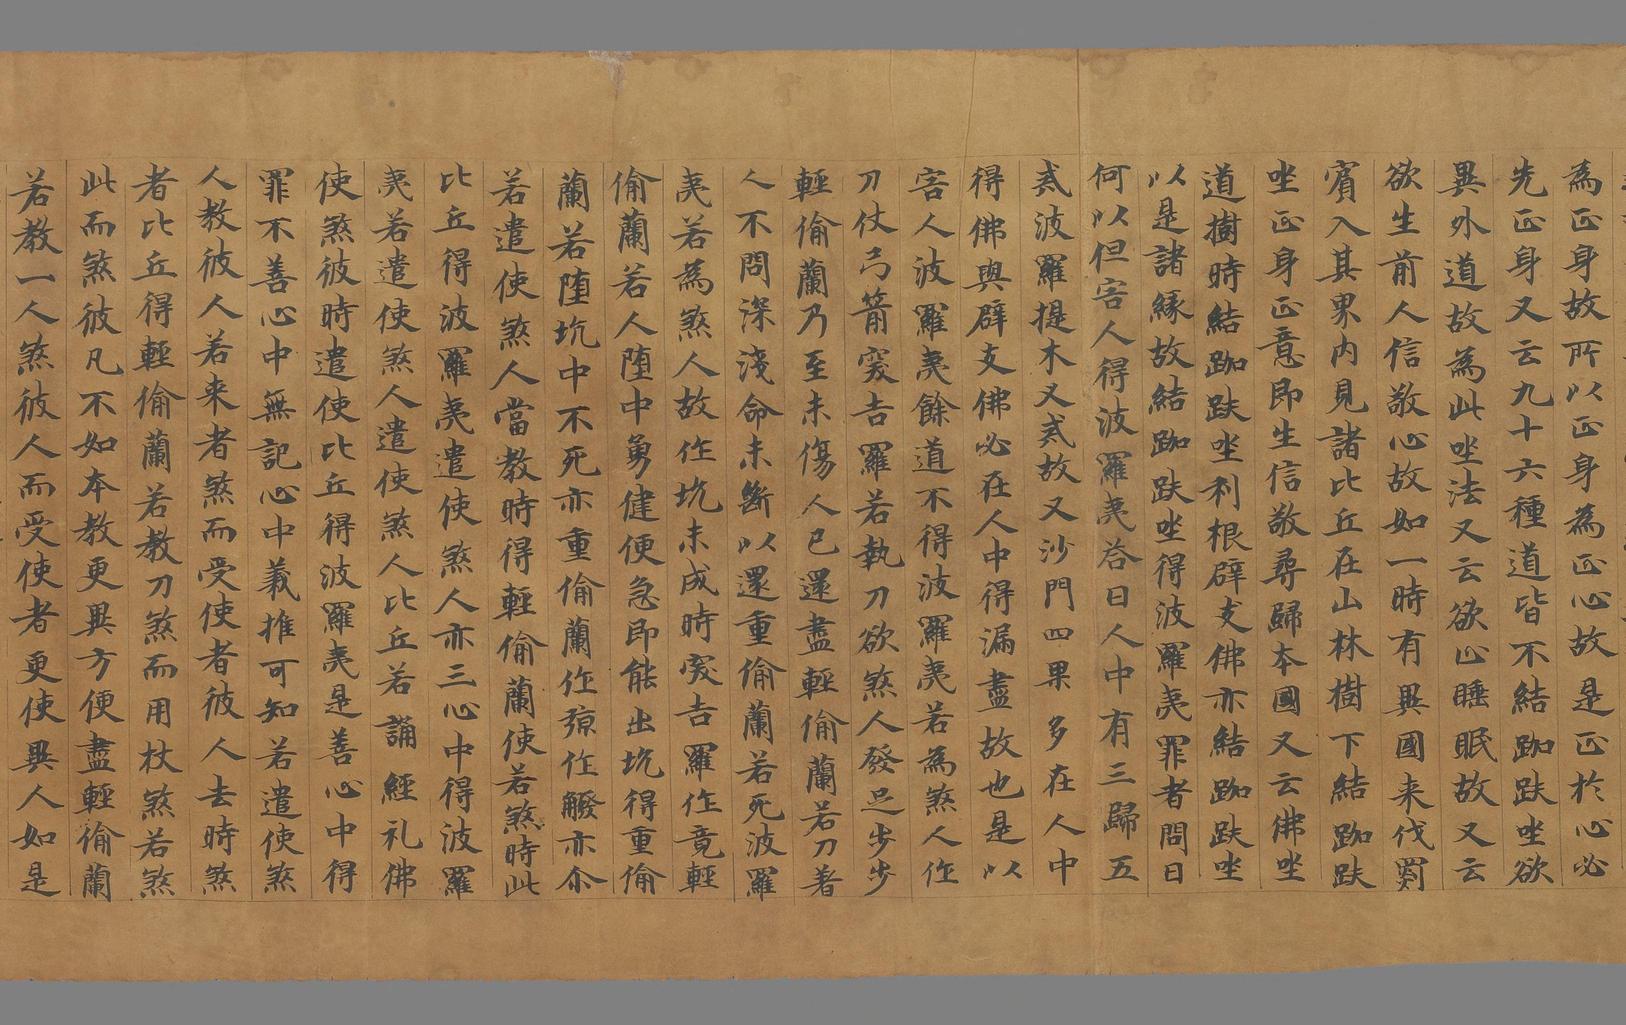 為正身故所以正身為正心故是正於心必
先正身又云九十六種道皆不結跏趺坐欲
異外道故為此坐法又云欲止睡眠故又云
欲生前人信敬心故如一時有異國来伐罽
賓入其界内見諸比丘在山林樹下結跏趺
坐正身正意即生信敬尋歸本國又云佛坐
道樹時結跏趺坐利根辟支佛亦結跏趺坐
以是諸縁故結跏趺坐得波羅夷罪者問曰
何以但害人得波羅夷荅曰人中有三歸五
貳波羅提木叉貳故又沙門四果多在人中
得佛與辟支佛必在人中得漏盡故也是以
害人波羅夷餘道不得波羅夷若為煞人作
刀仗弓箭突吉羅若執刀欲煞人發足步步
輕偷蘭乃至未傷人已還盡輕偷蘭若刀著
人不問深淺命未斷以還重偷蘭若死波羅
夷若為煞人故作坑未成時突吉羅作竟輕
偷蘭若人墮中勇健便急即能出坑得重偷
蘭若墮坑中不死亦重偷蘭作弶作撥亦尒
若遣使煞人當教時得輕偷蘭使若煞時此
比丘得波羅夷遣使煞人亦三心中得波羅
夷若遣使煞人遣使煞人比丘若誦經礼佛
使煞彼時遣使比丘得波羅夷是善心中得
罪不善心中無記心中義推可知若遣使煞
人教彼人若来者煞而受使者彼人去時煞
者比丘得輕偷蘭若教刀煞而用杖煞若煞
此而煞彼凡不如本教更異方便盡輕偷蘭
若教一人煞彼人而受使者更使異人如是